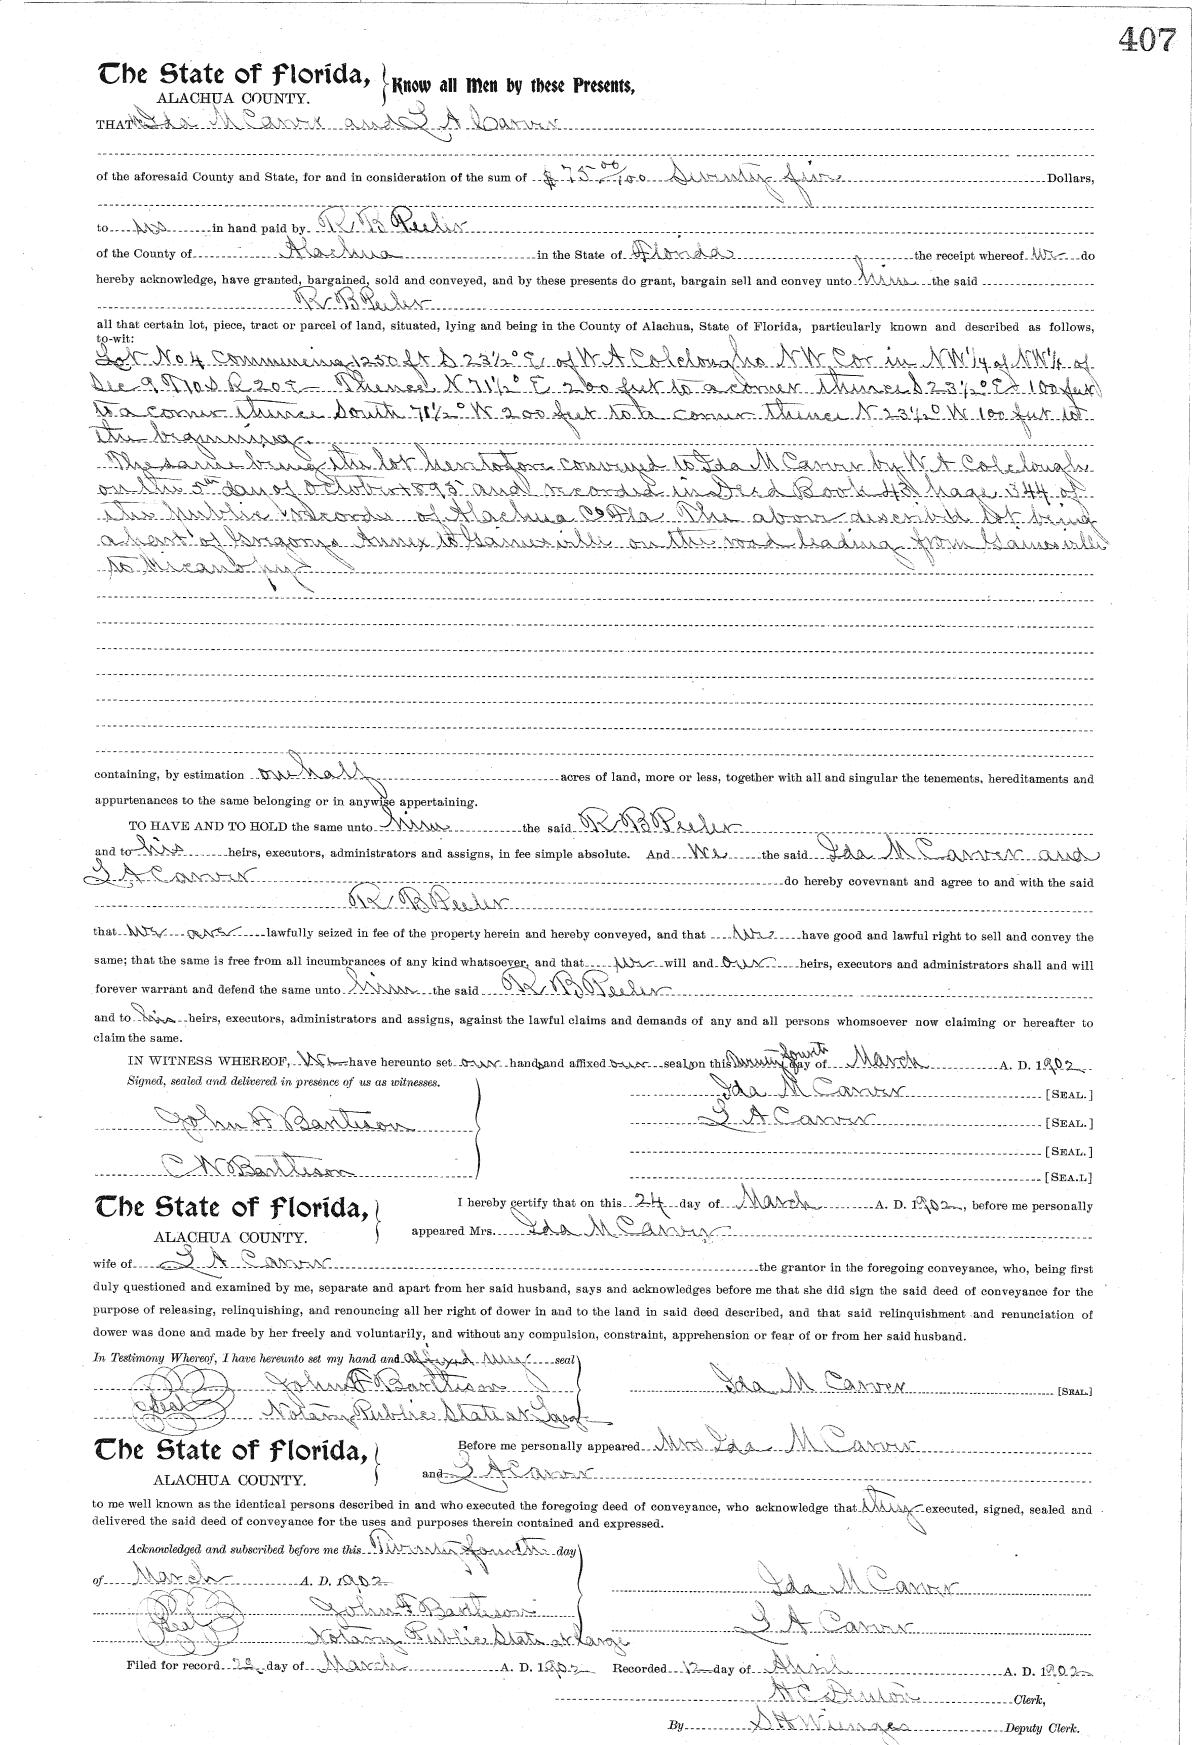 407
The State of Florida,
ALACHUA COUNTY.
Know all Men by these Presents,
THAT Ida M Carver and L A Carver
of the aforesaid County and State, for and in consideration of the sum of $75 00/100 Seventy five Dollars,
to us in hand paid by R B Peeler
of the County of Alachua in the State of Florida the receipt whereof we do
hereby acknowledge, have granted, bargained, sold and conveyed, and by these presents do grant, bargain sell and convey unto him the said
R B Peeler
all that certain lot, piece, tract or parcel of land, situated, lying and being in the County of Alachua, State of Florida, particularly known and described as follows,
to-wit:
Lot No 4 Commencing 1250 ft S 23½° E of W A Colcloughs N W Cor in NW¼ of NW¼ of
Sec 9 T 10 S R 20 E Thence N 71½° E 200 feet to a corner thence S 23½° E 100 feet
to a corner thence South 71½° W 200 feet to a corner thence N 23½° W 100 feet to
the beginning.
The same being the lot heretofore conveyed to Ida M Carver by W A Colclough
on the 5th day of October 1895 and recorded in Deed Book 43 page 344 of
the Public Records of Alachua Co Fla The above described lot being
a part of Gregorys Annex to Gainesville on the road leading from Gainesville
to Micanopy
containing, by estimation one half acres of land, more or less, together with all and singular the tenements, hereditaments and
appurtenances to the same belonging or in anywise appertaining.
TO HAVE AND TO HOLD the same unto him the said R B Peeler
and to his heirs, executors, administrators and assigns, in fee simple absolute. And we the said Ida M Carver and
L A Carver do hereby covevnant and agree to and with the said
R B Peeler
that we are lawfully seized in fee of the property herein and hereby conveyed, and that we have good and lawful right to sell and convey the
same; that the same is free from all incumbrances of any kind whatsoever, and that we will and our heirs, executors and administrators shall and will
forever warrant and defend the same unto him the said R B Peeler
and to his heirs, executors, administrators and assigns, against the lawful claims and demands of any and all persons whomsoever now claiming or hereafter to
claim the same.
IN WITNESS WHEREOF, We have hereunto set our hands and affixed our seals on this Twenty fourth day of March A. D. 1902
Signed, sealed and delivered in presence of us as witnesses.
Ida M Carver [SEAL.]
L A Carver [SEAL.]
John F Bartleson
[SEAL.]
C W Bartleson
[SEA.L]
The State of Florida,
ALACHUA COUNTY.
I hereby certify that on this 24 day of March A. D. 1902, before me personally
appeared Mrs. Ida M Carver
wife of L A Carver the grantor in the foregoing conveyance, who, being first
duly questioned and examined by me, separate and apart from her said husband, says and acknowledges before me that she did sign the said deed of conveyance for the
purpose of releasing, relinquishing, and renouncing all her right of dower in and to the land in said deed described, and that said relinquishment and renunciation of
dower was done and made by her freely and voluntarily, and without any compulsion, constraint, apprehension or fear of or from her said husband.
In Testimony Whereof, I have hereunto set my hand and affixed my seal
John F Bartleson Ida M Carver [SEAL.]
Seal Notary Public State at Large
The State of Florida,
ALACHUA COUNTY.
Before me personally appeared Mrs Ida M Carver
and L A Carver
to me well known as the identical persons described in and who executed the foregoing deed of conveyance, who acknowledge that they executed, signed, sealed and
delivered the said deed of conveyance for the uses and purposes therein contained and expressed.
Acknowledged and subscribed before me this Twenty fourth day
of March A. D. 1902
Ida M Carver
John F Bartleson
L A Carver
Seal Notary Public State at Large
Filed for record 28 day of March A. D. 1902 Recorded 12 day of April A. D. 1902
H C Denton Clerk,
By S H Wienges Deputy Clerk.